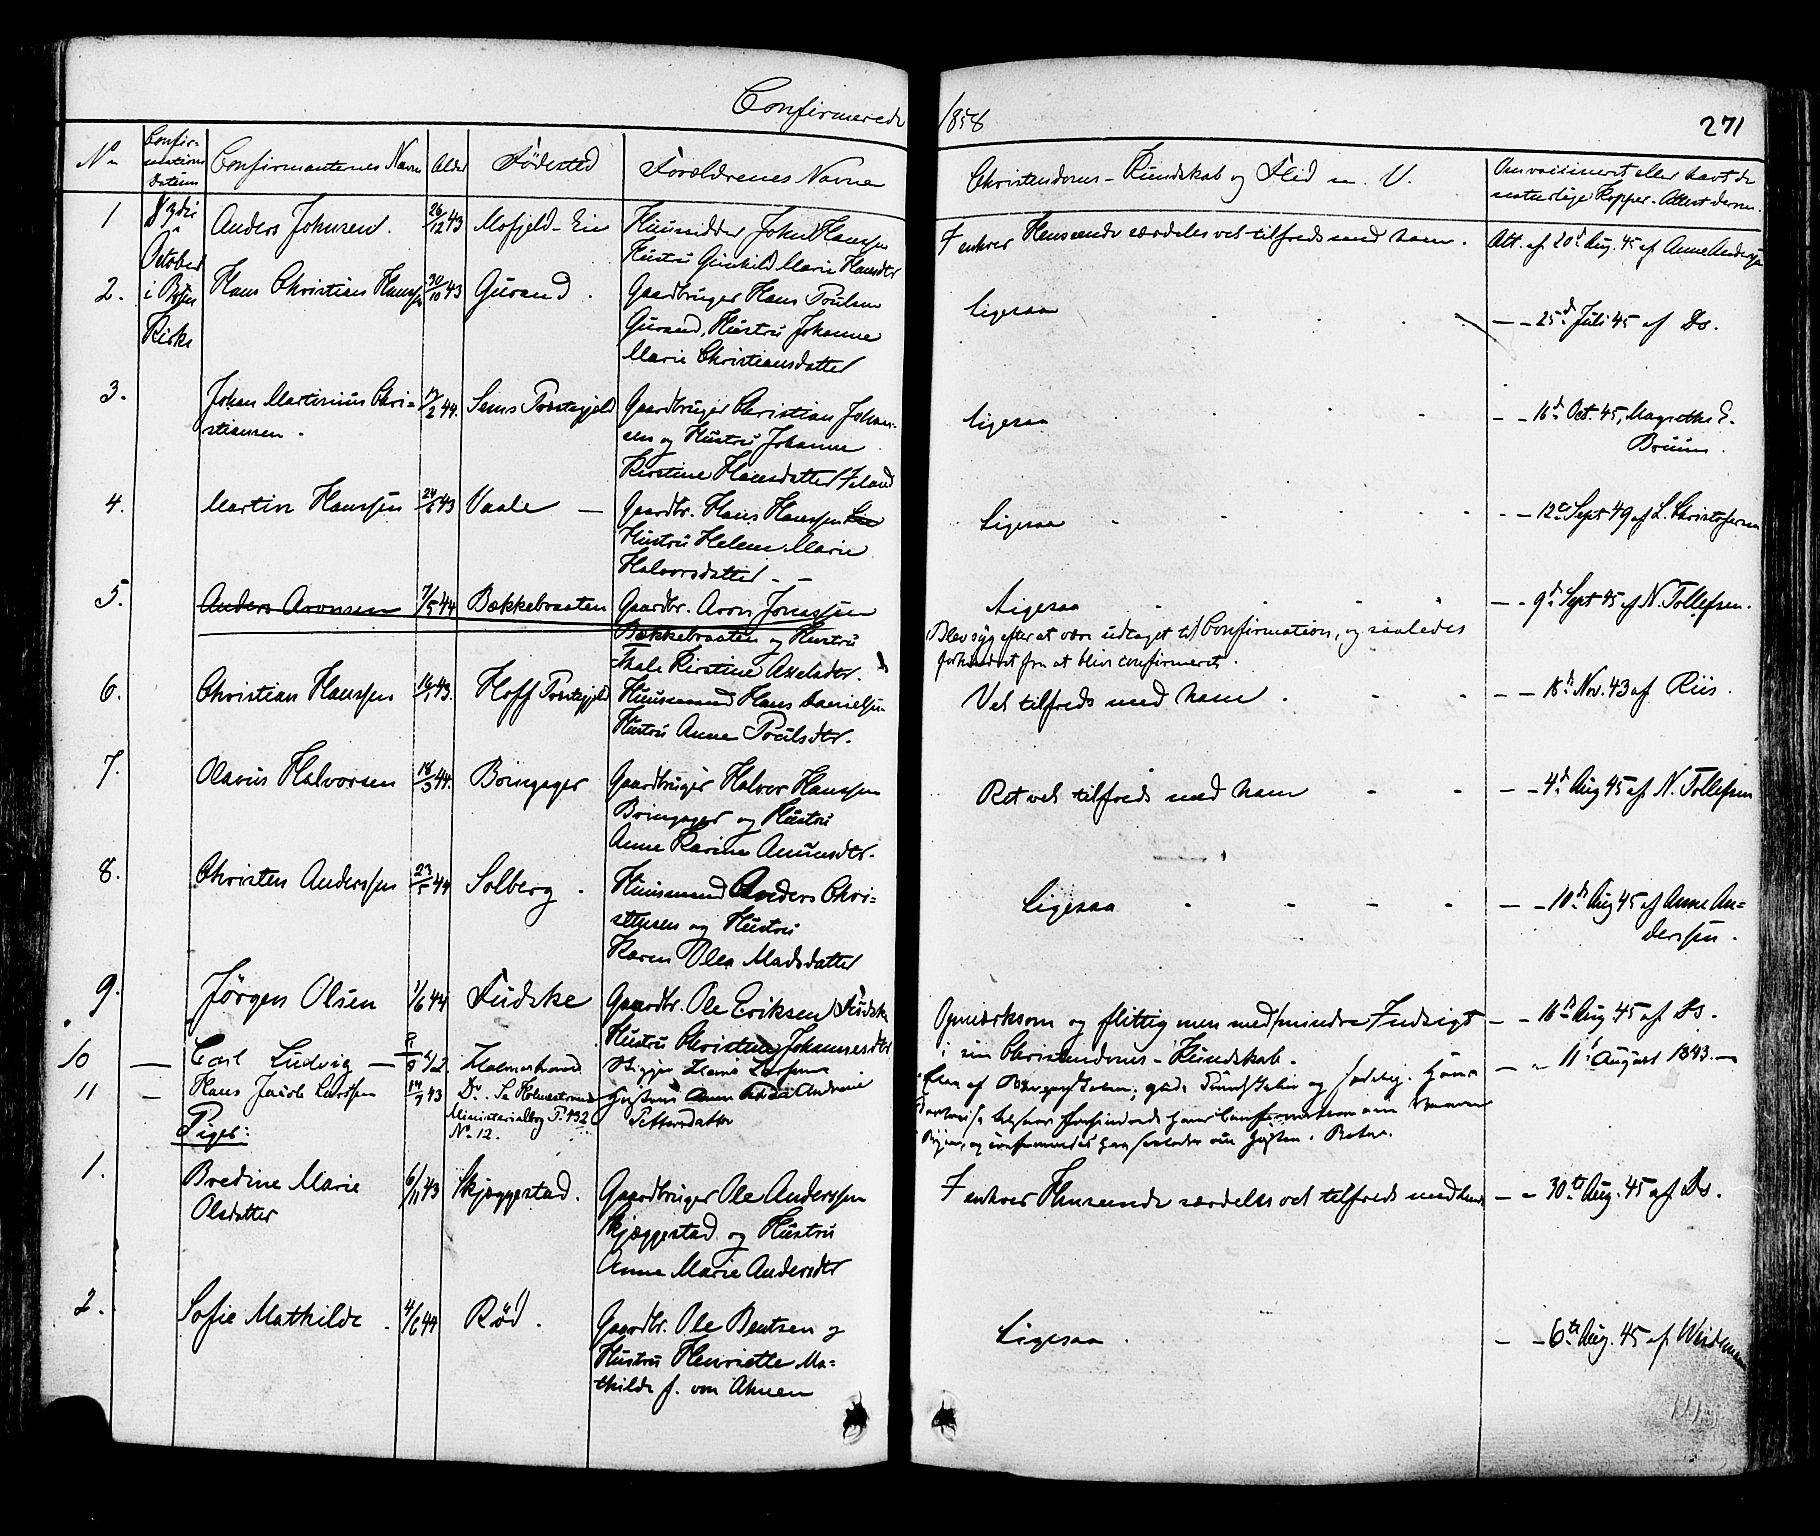 Confirmerede 1858 271
No Confirmations Datum Confirmanternes Navne Alder Fødested Forældrenes Navne Christendoms-Kundskab og Flid m. V. Om vaccineret eller havt de naturlige Kopper. Attest derom.
1 October i Kirke Anders Johnsen. 26/12 43 Mofjeld-Eie Huusmand John Hanssen
Hustru Gunhild Marie Hansdtr
I enhver Henseende særdeles vel tilfreds med ham. Att. af 20d Aug. 45 af Anne Anderssen
2. Hans Christian Hanssen 30/10 43 Gurand. Gaardbruger Hans Poulsen
Gurand, Hustru Johanne
Marie Christiansdatter
Ligesaa - - 25d Juli 45 af Ds.
3. Johan Martinius Chri-
stiansen. 17/2 44. Sems Præstegjeld Gaardbruger Christian Johan-
sen og Hustru Johanne
Kirstine Hansdatter
Ligesaa - - 16d Oct. 45, Magrethe E.
Bruun.
4. Martin Hanssen 43 Vaale - Gaardbr. Hans Hanssen
Hustru Helene Marie
Halvorsdatter - -
Ligesaa - - 12te Sept 49 af L. Christofersen
5. Anders Aronsen 7/5 44 Bækkebraaten Gaardbr. Aron Jonassen
Bækkebraaten og Hustru
Kirstine Axelsdtr.
Ligesaa - - 9d Sept 45 af N. Tollefsen.
Blev syg efter at være udtaget til Confirmation, og saaledes
forhindret fra at blive confirmeret.
6. Christian Hanssen 43. Hoff Præstegjeld Huusmand Hans Danielsen
Hustru Anne Poulsdtr.
Vel tilfreds med ham. - - 18d Nov. 43 af Riis.
7. Olavus Halvorsen 18/3 44. Bringager Gaardbruger Halvor Hanssen
Bringager og Hustru
Anne Karine Amundsdtr.
Ret vel tilfreds med ham - - 4d Aug 45 af N. Tollefsen
8. Christen Anderssen 23/5 44 Solberg. Huusmand Anders Chri-
stensen og Hustru
Karen Olea Madsdatter
Ligesaa - - 10de Aug 45 af Anne An=
derssen.
9. Jørgen Olsen 1/6 44 Fudske Gaardbr. Ole Eriksen Fudske
Hustru Christine Johannesdtr
Opmærksom og flittig men med mindre Indsigt - - 16d Aug 45 af Ds.
i sin Christendoms-Kundskab.
10 - Carl Ludvig - Holmestrand
11 - Hans Jacob Larssen 43 Do. Se Holmestrands
Ministerialbog P. 432
No 12.
Hans Larssen
Hustru Anne Andrine
Pettersdatter
- " 11t August 1843. -
Piger:
1. Bredine Marie
Olsdatter 6/11 43 Skjæggestad. Gaardbruger Ole Anderssen
Skjæggestad og Hustru
Anne Marie Andersdtr
I enhver Henseende særdeles vel tilfreds med hende - - 30te Aug. 45 af Ds.
2. Sofie Mathilde. 4/6 44 Rød. Gaardbr. Ole Bentsen og
Hustru Henriette Ma=
thilde f. von Ahnen
Ligesaa. - - 6te Aug. 45 af Weidemann